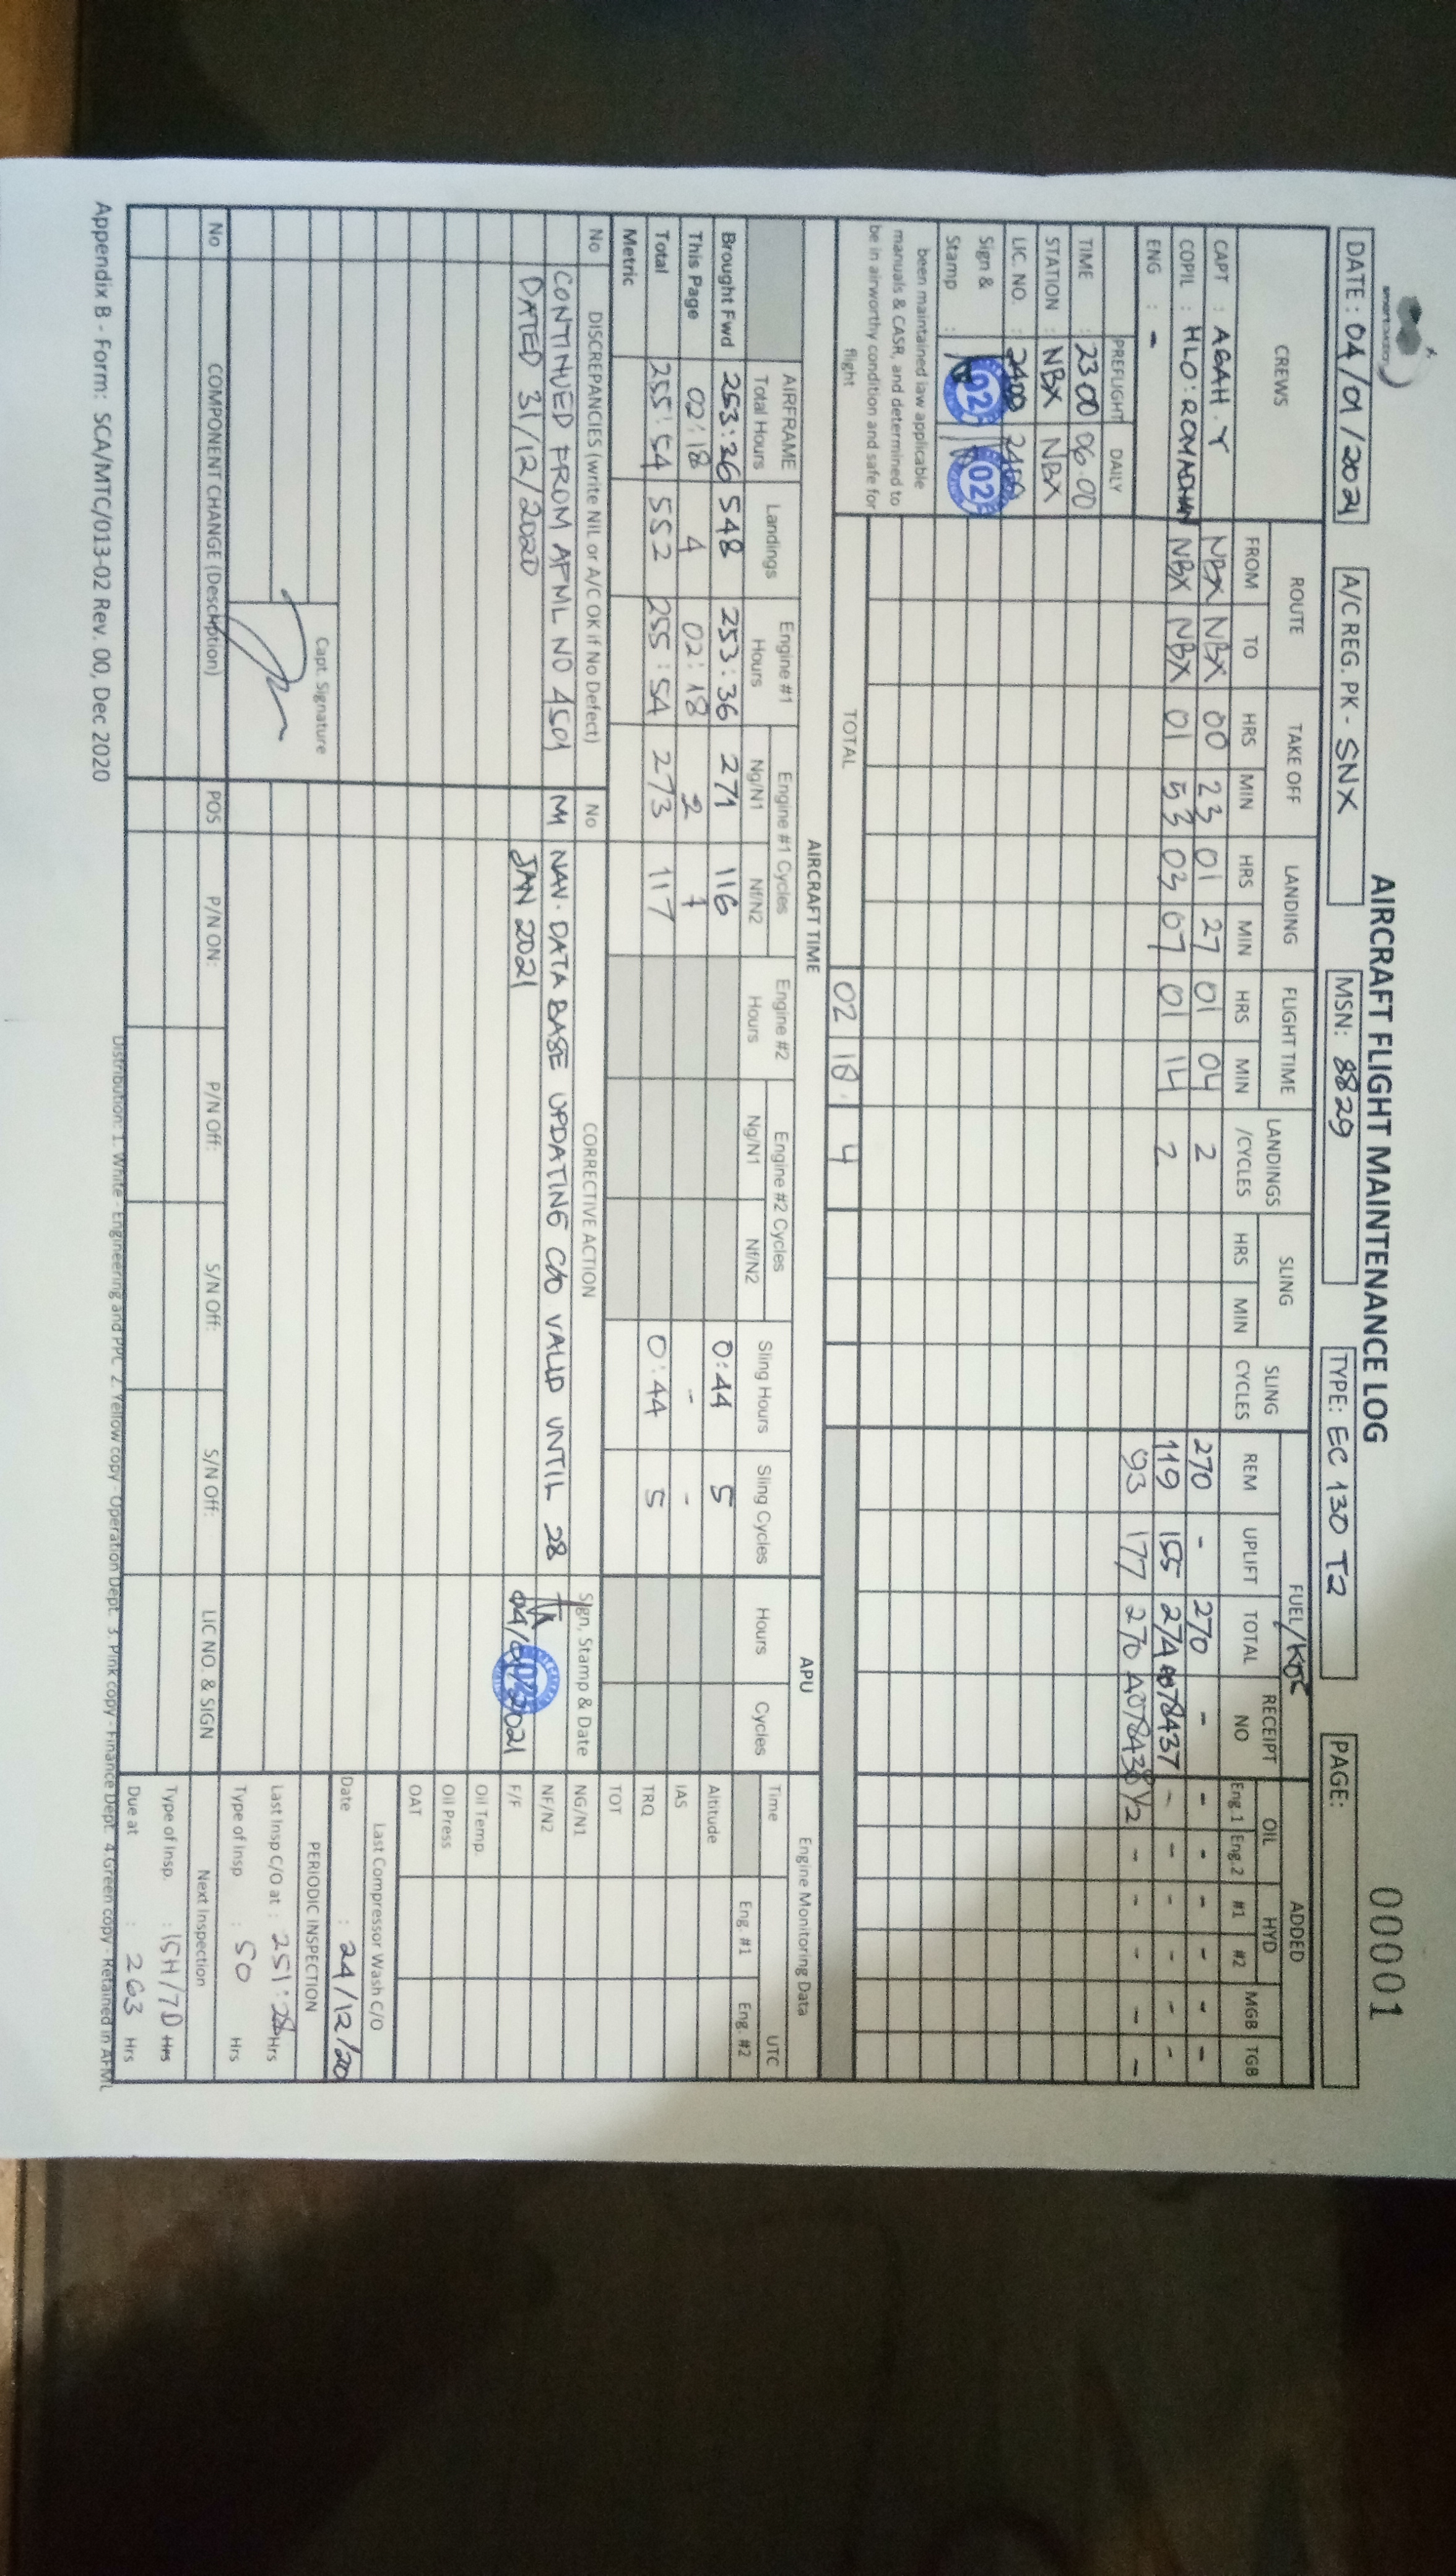 smart aviation
AIRCRAFT FLIGHT MAINTENANCE LOG
00001
DATE: 04/01/2021 A/C REG. PK - SNX MSN: 8829 TYPE: EC 130 T2 PAGE:
CREWS ROUTE TAKE OFF LANDING FLIGHT TIME LANDINGS /CYCLES SLING SLING CYCLES FUEL/ RECEIPT NO OIL HYD ADDED
FROM TO HRS MIN HRS MIN HRS MIN HRS MIN REM UPLIFT TOTAL Eng.1 Eng.2 #1 #2 MGB TGB
CAPT : AGAH.Y NBX NBX 00 23 01 27 01 04 2 270 - 270 - - - - - - -
COPIL : HLO: ROMADHAN NBX NBX 01 53 03 07 01 14 2 119 155 274 A078437 - - - - - -
ENG : - 93 177 270 A078438 1/2 - - - - -
PREFLIGHT DAILY
TIME : 23 00 06.00
STATION : NBX NBX
LIC. NO. : 2400 2400
Sign & Stamp : 02 02
been maintained iaw applicable
manuals & CASR, and determined to
be in airworthy condition and safe for
flight
TOTAL 02 18 4
AIRCRAFT TIME APU Engine Monitoring Data
AIRFRAME Total Hours Landings Engine #1 Hours Engine #1 Cycles Ng/N1 Nf/N2 Engine #2 Hours Engine #2 Cycles Ng/N1 Nf/N2 Sling Hours Sling Cycles Hours Cycles Time UTC
Eng. #1 Eng. #2
Brought Fwd 253:36 548 253:36 271 116 0:44 5 Altitude
This Page 02:18 4 02:18 2 1 - - IAS
Total 255:54 552 255:54 273 117 0:44 5 TRQ
Metric TOT
No DISCREPANCIES (write NIL or A/C OK if No Defect) No CORRECTIVE ACTION Sign, Stamp & Date NG/N1
CONTINUED FROM AFML NO 4501 NAV. DATA BASE UPDATING C/O VALID UNTIL 28 NF/N2
DATED 31/12/2020 JAN 2021 04/01/2021 F/F
Oil Temp.
Oil Press
OAT
Last Compressor Wash C/O
Date : 24/12/20
PERIODIC INSPECTION
Capt. Signature
Last Insp C/O at : 251:28 Hrs
Type of Insp : 50 Hrs
No COMPONENT CHANGE (Description) POS P/N ON: P/N Off: S/N Off: S/N Off: LIC NO. & SIGN Next Inspection
Type of Insp. : 15H/7D Hrs
Due at : 263 Hrs
Distribution: 1. White - Engineering and PPC 2. Yellow copy - Operation Dept. 3. Pink copy - Finance Dept. 4.Green copy - Retained in AFML
Appendix B - Form: SCA/MTC/013-02 Rev. 00, Dec 2020